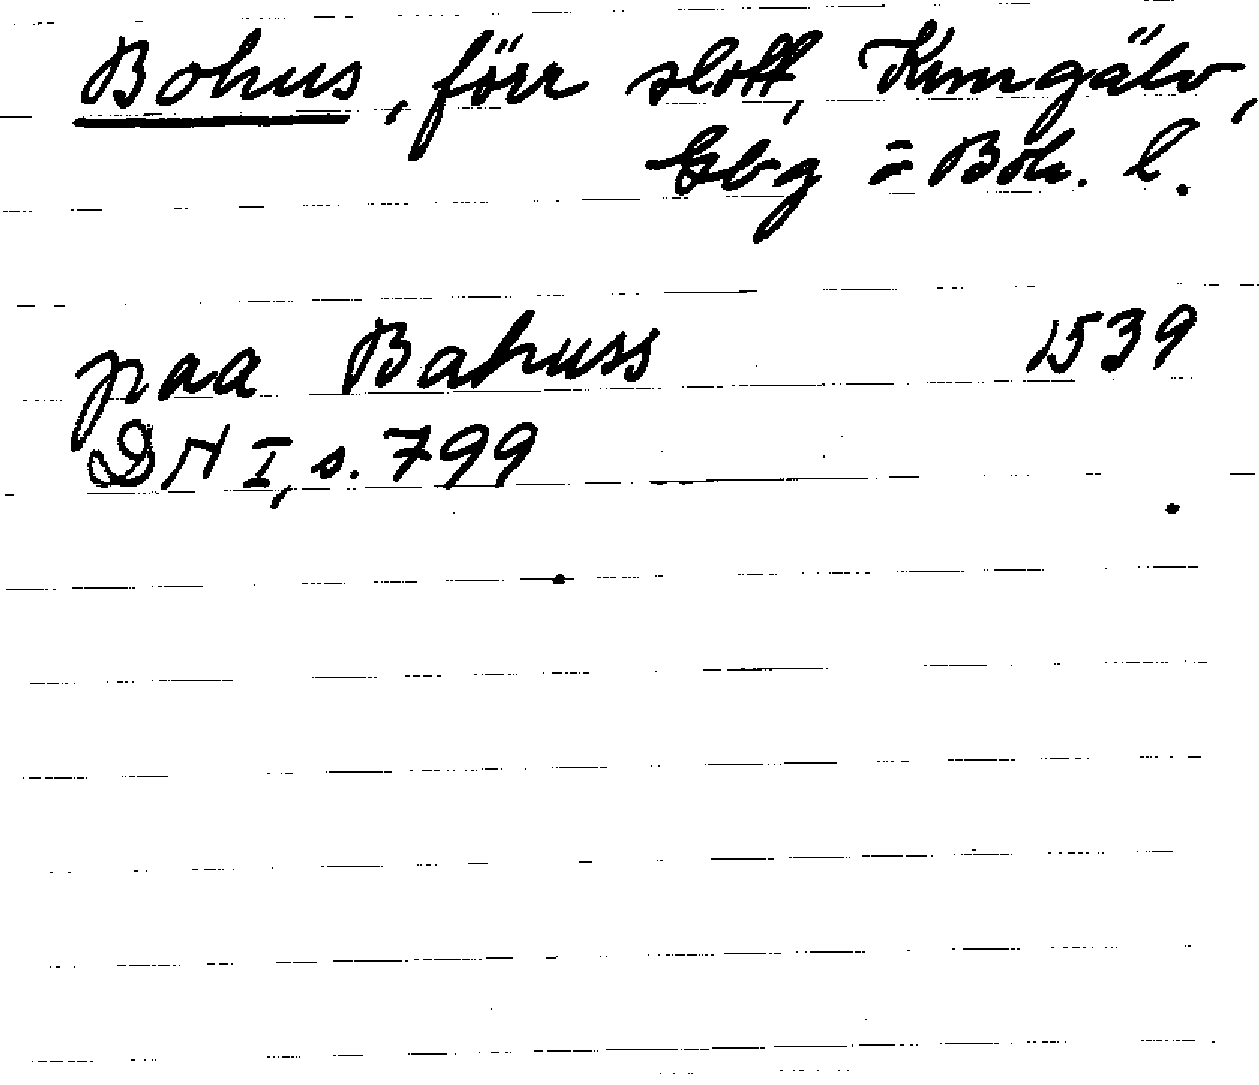 Bohus, förr slott, Kungälv,
Gbg o Boh. l.
paa Bahuss 1539
DN I, s. 799